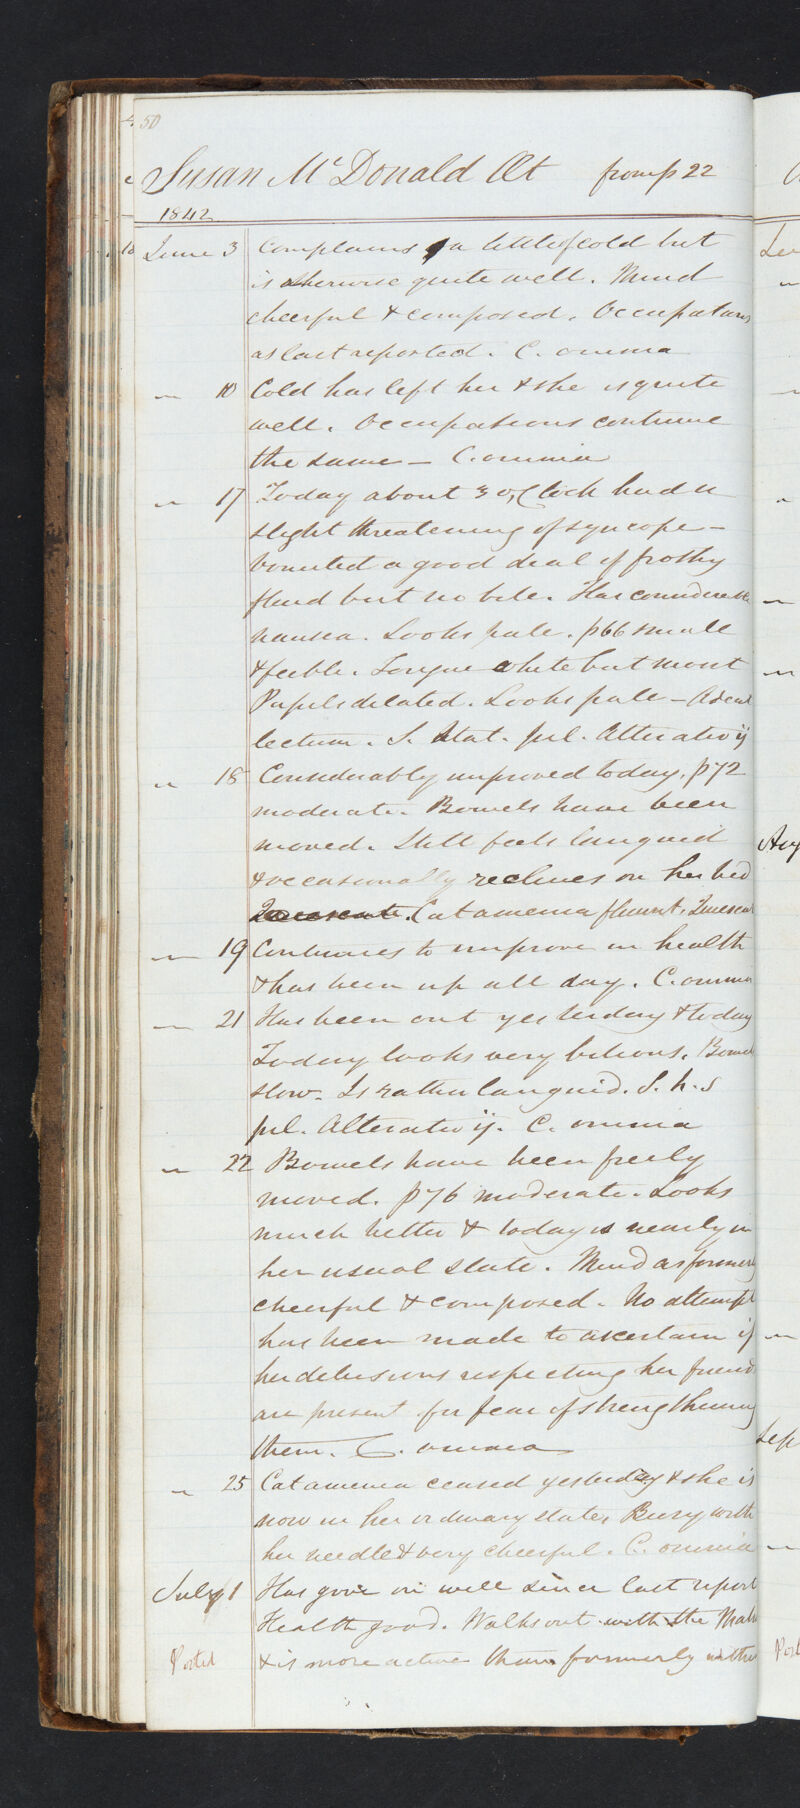 50
Susan McDonald Æt from p 22
1842
June 3 Complains of a little of cold but
is otherwise quite well. Mind
cheerful & composed. Occupations
as last reported. C. omnia
" 10 Cold has left her & she is quite
well. Occupations continue
the same – C. omnia
" 17 Today about 3 o,Clock had a
slight threatening of syncope –
vomited a good deal of frothy
fluid but no bile. Has considerable
nausea. Looks pale. p66 small
& feeble. Tongue white but moist
Pupils dilated. Looks pale – Adeat
lectum. S. Stat. pil. Alterativ ij
" 18 Considerably improved today. p72
moderate. Bowels have been
moved. Still feels languid
& occasionally reclines on her bed
Catamenia fluunt. Quiescat
" 19 Continues to improve in health
& has been up all day. C. omnia
" 21 Has been out yesterday & today
Today looks very bilious. Bowels
slow. Is rather languid. S. h. s
pil. Alterativ ij. C. omnia
" 22 Bowels have been freely
moved. p76 moderate. Looks
much better & today is nearly in
her usual state. Mind as formerly
cheerful & composed. No attempt
has been made to ascertain if
her delusions respecting her friends
are present for fear of strengthening
them. C. omnia
" 25 Catamenia ceased yesterday & she is
now in her ordinary state. Busy with
her needle & very cheerful. C. omnia
July 1 Has gone on well since last report
Health good. Walks out with the
Posted & is more active than formerly